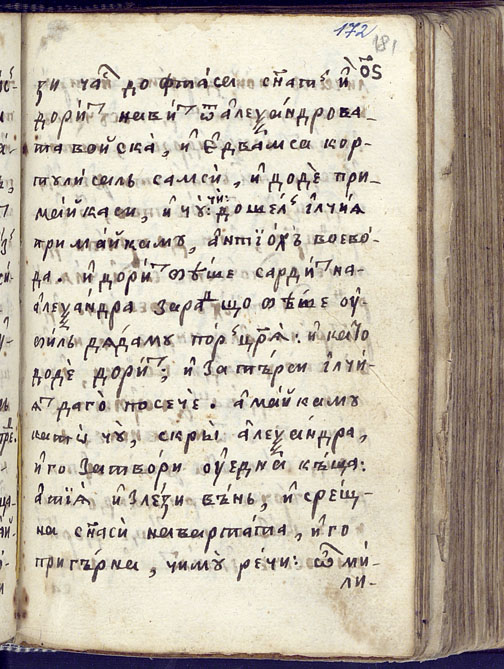 172
181
ѻ҃ѕ
ци ча́с до фта́са сн҃ать и҆
дори́ нави́ ѿ а҆леѯа́ндрова-
та войска̀, и҆ е҆два́мса кор-
тули́салъ самсѝ, и҆ додѐ при
ма́йкаси, и҆ чꙋ̀: чи: доше́лъ і҆лчїѧ
при ма́йкамꙋ, а҆нтїо́хъ воево́-
да. и҆ дори́ тѣ́ше сарди́ на-
а҆леѯа́ндра зара́дщо тѣ́ше оу҆-
би́лъ дѧ́дамꙋ по́ръ цр҃ѧ̀. и҆ като̀
додѐ дори́; и҆ затъ́рси і҆лчи-
ѧ̀ даго̀ посечѐ. а҆ ма́йкамꙋ
като̀ чꙋ̀, скры̀ а҆леѯа́ндра,
и҆ го затво́ри оу҆ една̀ къща:
а҆ тїѧ̀ и҆зле́зи въ́нь, и҆ срещ-
на сн҃аси̇̀ наварта́та, и҆ го
пригъ́рна, чимꙋ̀ ре́чи: ѽ ми́-
ли-